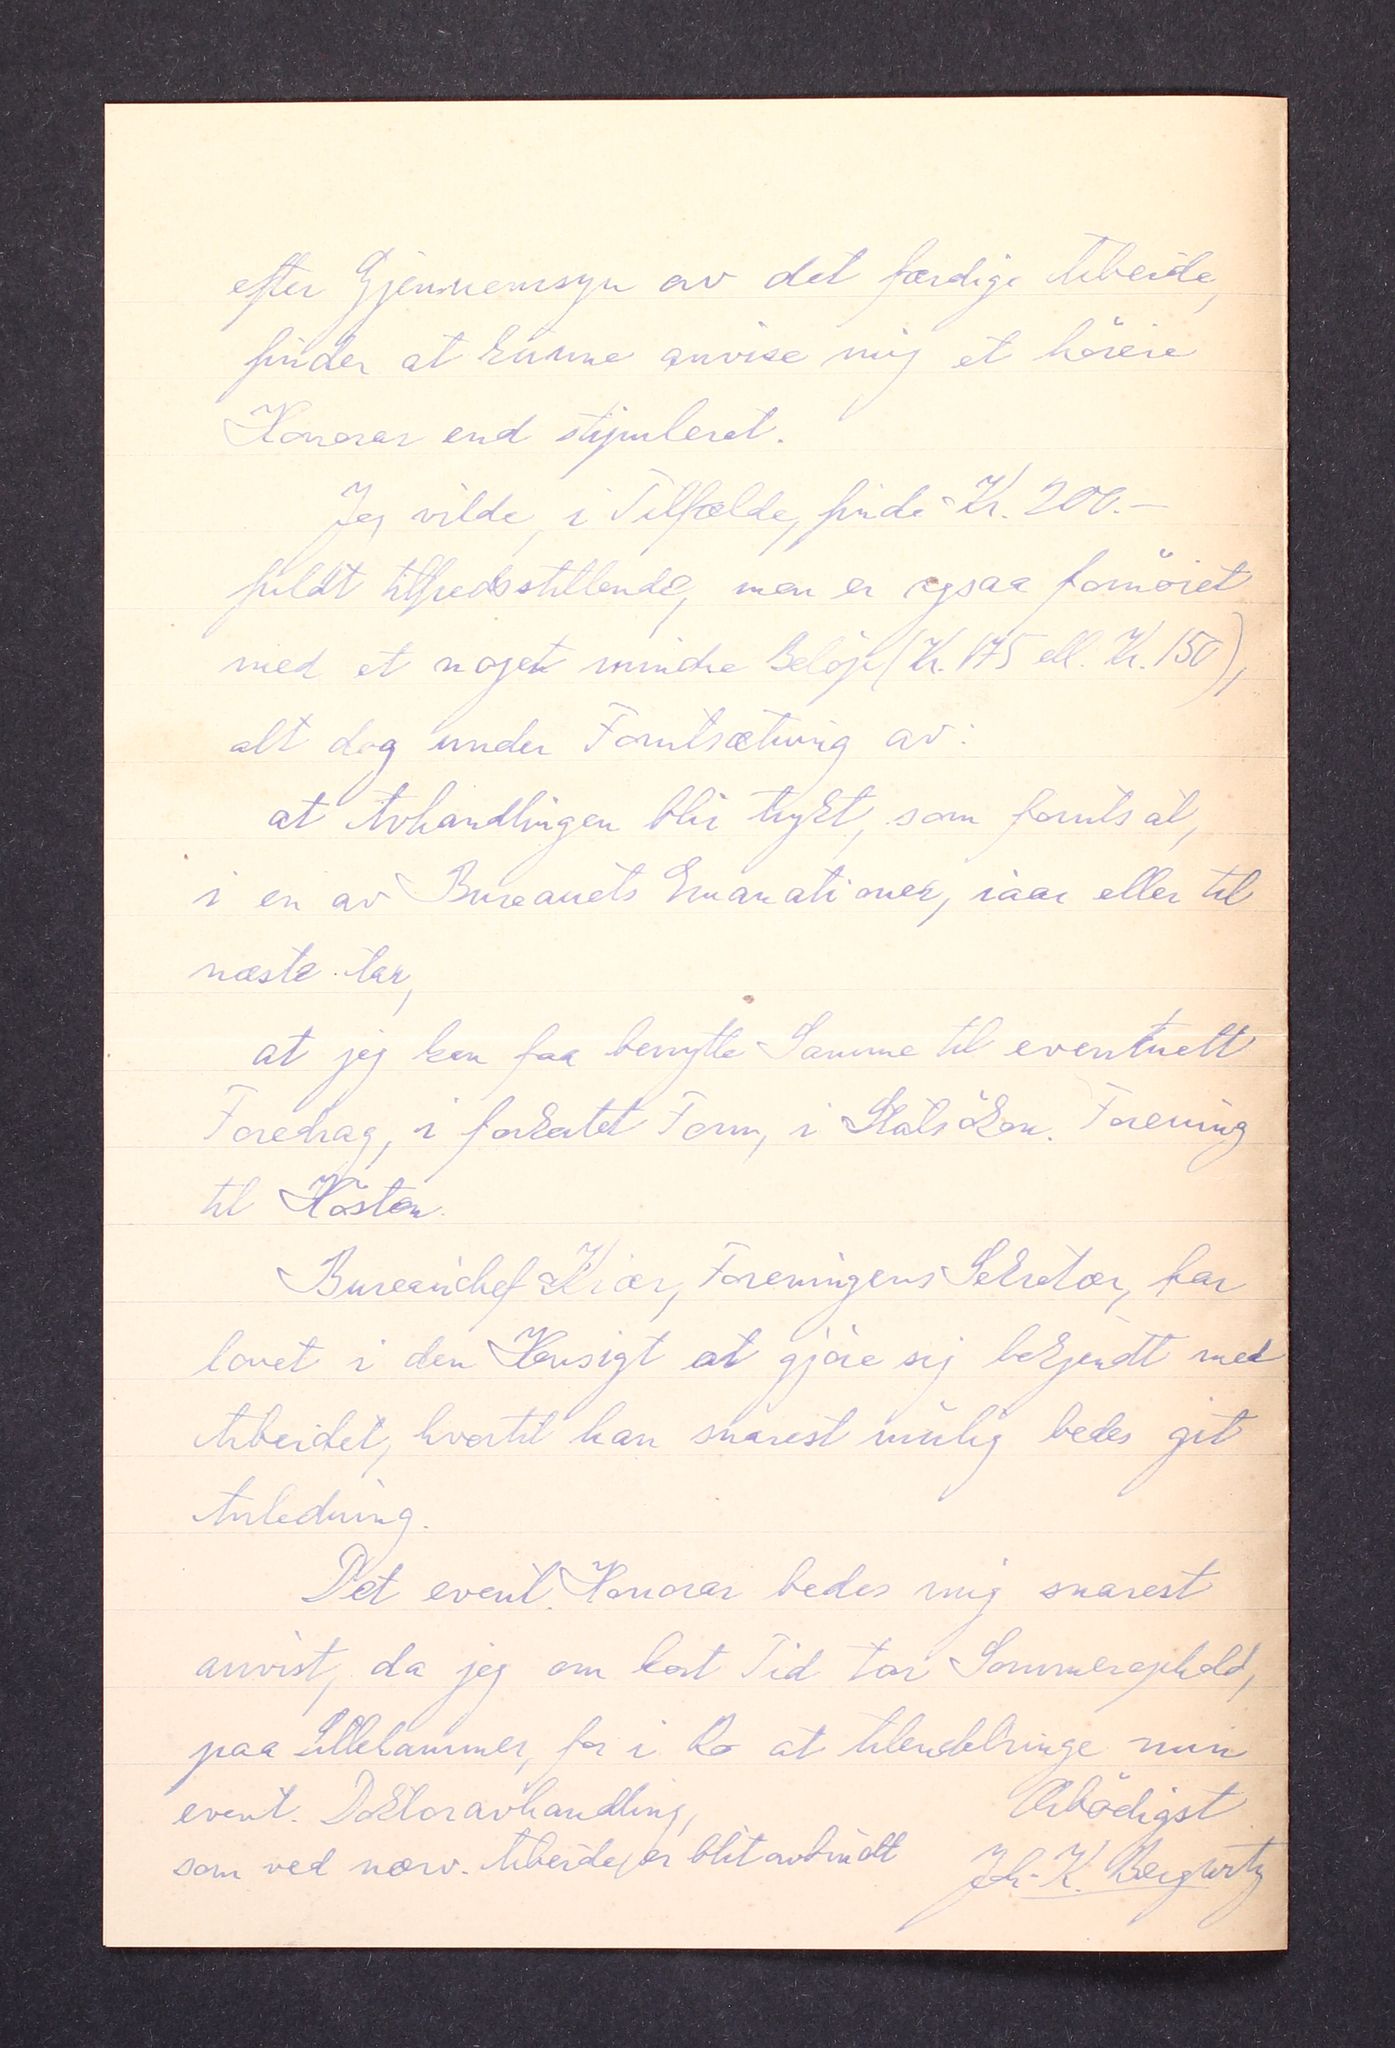 efter Gjennemsyn av det færdige Arbeide,
finder at kunne anvise mig et höiere
Honorar end stipuleret.
Jeg vilde, i Tilfælde, finde Kr. 200.-
fuldt tilfredsstillende, men er ogsaa fornöiet
med et noget mindre Belöp (Kr. 175 ell. Kr. 150),
alt dog under Forutsætning av:
at Avhandlingen blir trykt, som forutsat,
i en av Bureauets Emanationer, iaar eller til
næste Aar,
at jeg kan faa benytte Samme til eventuelt
Foredrag, i forkortet Form, i Statsökon. Forening
til Hösten.
Bureauchef Kiær, Foreningens Sekretær, har
lovet i den Hensigt at gjöre sig bekjendt med
Arbeidet, hvortil han snarest mulig bedes git
Anledning.
Det event. Honorar bedes mig snarest
anvist, da jeg om kort Tid tar Sommerophold,
paa Lillehammer, for i Ro at tilendebringe min
event. Doktoravhandling,
som ved nærv. Arbeide, er blit avbrudt
Ærbödigst
Joh. K. Bergwitz